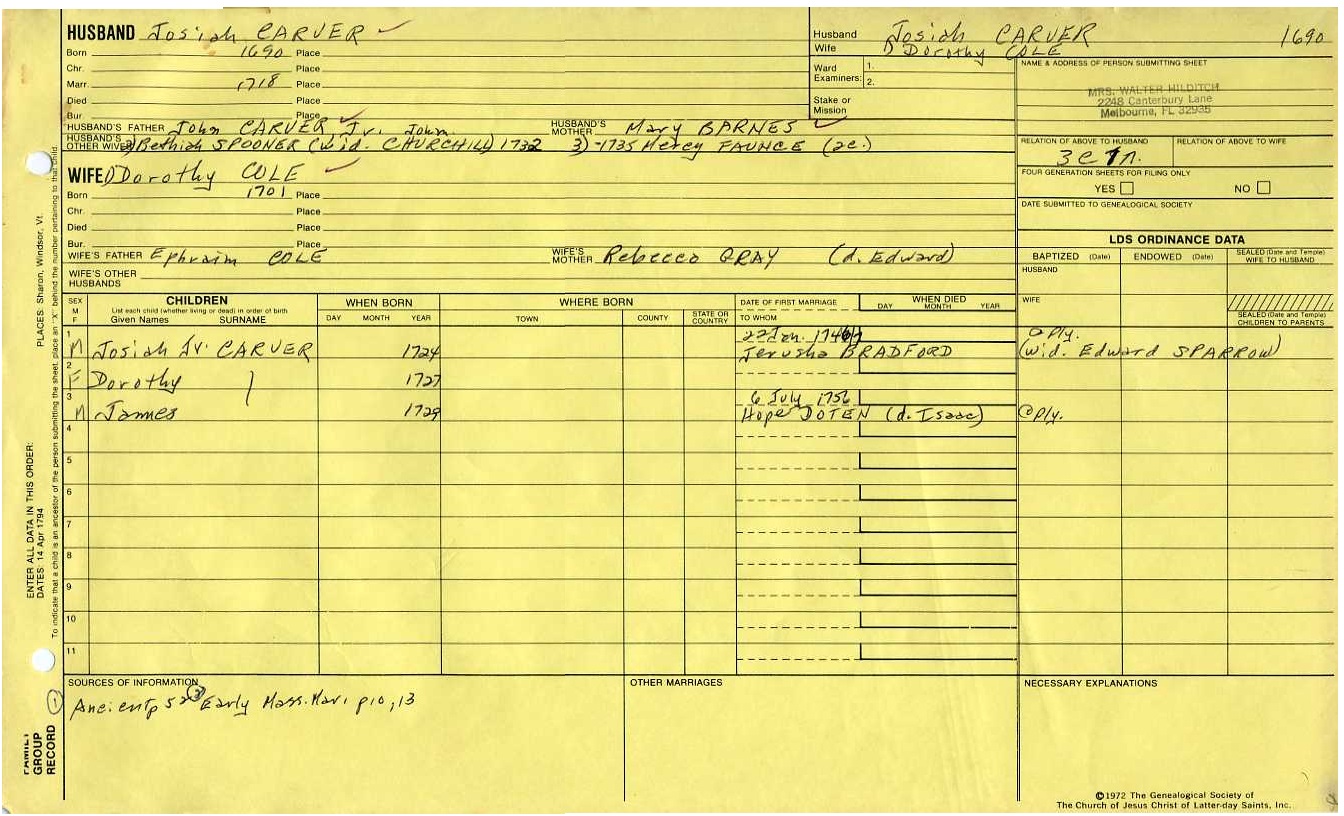 HUSBAND Josiah CARVER
Born 1690 Place
Chr. Place
Marr. 1718 Place
Died Place
Bur. Place
HUSBAND'S FATHER John CARVER, Jr. John HUSBAND'S MOTHER Mary BARNES
HUSBAND'S OTHER WIVES 2) Bethiah SPOONER (wid. CHURCHILL) 1732 3) -1735 Mercy FAUNCE (2c.)
WIFE 1) Dorothy COLE
Born 1701 Place
Chr. Place
Died Place
Bur. Place
WIFE'S FATHER Ephraim COLE WIFE'S MOTHER Rebecca GRAY (d. Edward)
WIFE'S OTHER HUSBANDS
Husband Josiah CARVER 1690
Wife 1) Dorothy COLE
Ward Examiners: 1.
2.
Stake or Mission
NAME & ADDRESS OF PERSON SUBMITTING SHEET
MRS. WALTER HILDITCH
2248 Canterbury Lane
Melbourne, FL 32935
RELATION OF ABOVE TO HUSBAND RELATION OF ABOVE TO WIFE
FOUR GENERATION SHEETS FOR FILING ONLY
YES NO
DATE SUBMITTED TO GENEALOGICAL SOCIETY
LDS ORDINANCE DATA
BAPTIZED (Date) ENDOWED (Date) SEALED (Date and Temple) WIFE TO HUSBAND
HUSBAND
WIFE
SEALED (Date and Temple) CHILDREN TO PARENTS
SEX M F CHILDREN WHEN BORN WHERE BORN DATE OF FIRST MARRIAGE WHEN DIED
List each child (whether living or dead) in order of birth
Given Names SURNAME DAY MONTH YEAR TOWN COUNTY STATE OR COUNTRY TO WHOM DAY MONTH YEAR
1 22 Jan. @ Ply.
M Josiah Jr. CARVER 1724 Jerusha BRADFORD (wid. Edward SPARROW)
2
F Dorothy 1727
3 6 July 1756
M James 1729 Hope DOTEN (d. Isaac) @ Ply.
4
5
6
7
8
9
10
11
SOURCES OF INFORMATION OTHER MARRIAGES NECESSARY EXPLANATIONS
Ancient p 52 3 Early Mass. Mar. p 10, 13
©1972 The Genealogical Society of
The Church of Jesus Christ of Latter-day Saints, Inc.
PLACES: Sharon, Windsor, Vt.
ENTER ALL DATA IN THIS ORDER:
DATES: 14 Apr 1794
To indicate that a child is an ancestor of the person submitting the sheet, place an "X" behind the number pertaining to that child
FAMILY GROUP RECORD
1